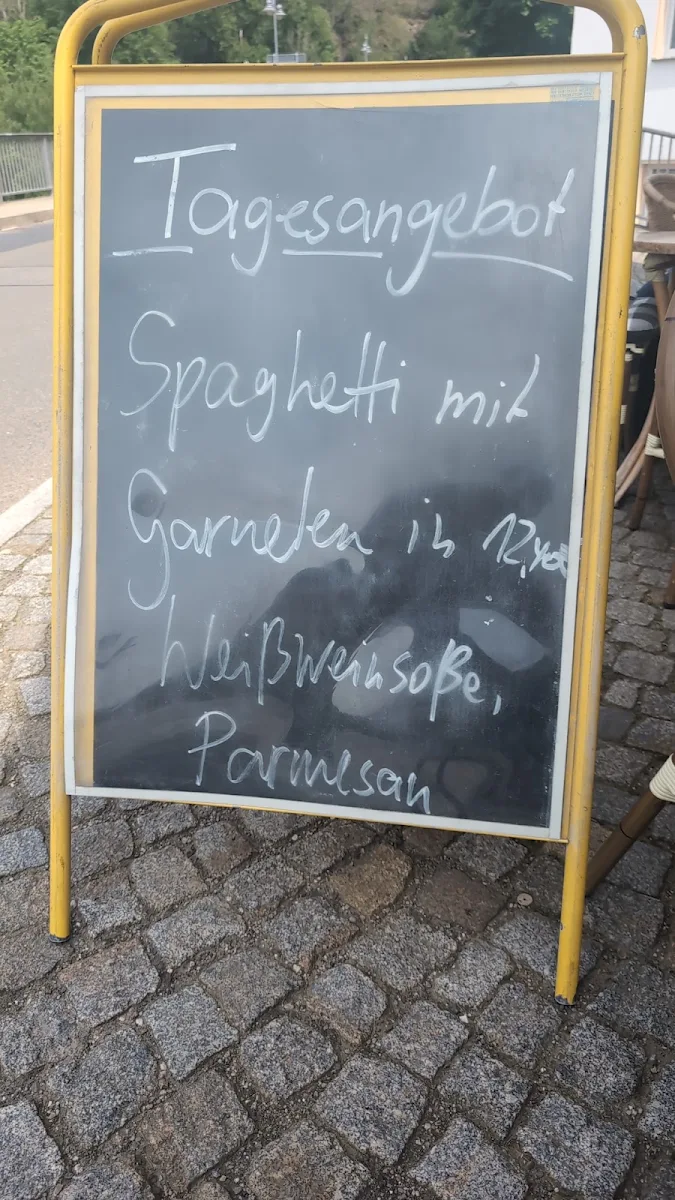 Tagesangebot
Spaghetti mit
Garnelen in 12,40€
Weißweinsoße,
Parmesan